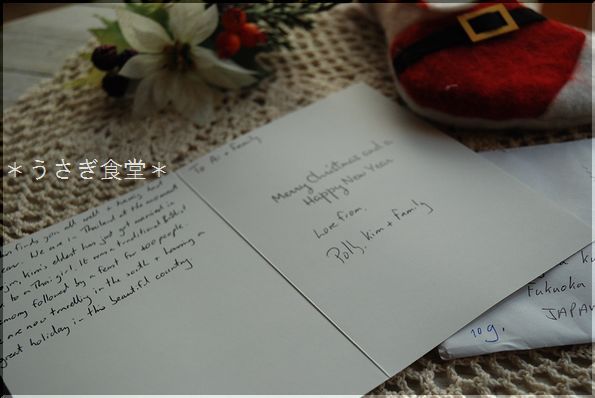 ＊うさぎ食堂＊
finds you all well + having had
year. We are in Thailand at the moment
Kim's eldest has just got married in
to a Thai girl. It was a traditional
followed by a feast for 200 people.
are now travelling in the south + having a
great holiday in this beautiful country
To Ai + Family
Merry Christmas and a
Happy New Year
Love from
Polly, Kim + Family
Fukuoka
JAPAN
10g.